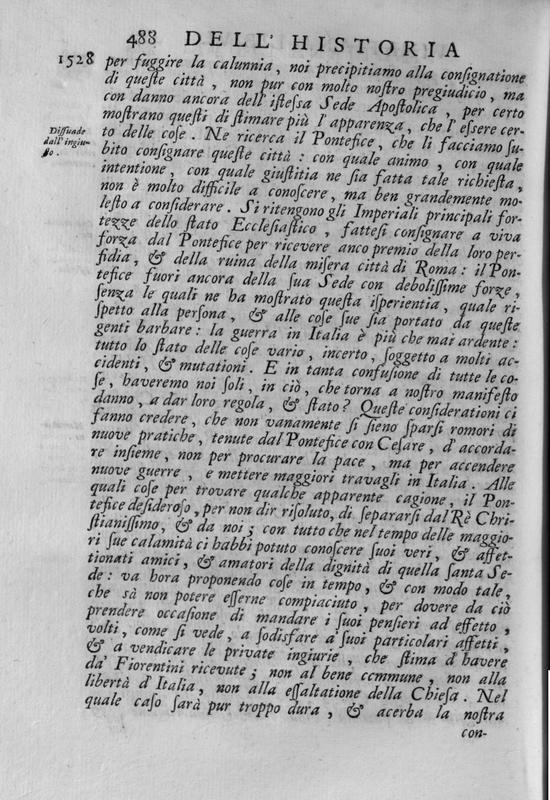 488 DELL' HISTORIA
1528 per fuggire la calunnia, noi precipitiamo alla conſignatione
di queſte città, non pur con molto noſtro pregiudicio, ma
con danno ancora dell'iſteſſa Sede Apoſtolica, per certo
moſtrano queſti di ſtimare più l'apparenza, che l'eſſere cer-
Diſſuade
dall'ingiu-
ſto.
to delle coſe. Ne ricerca il Pontefice, che li facciamo ſu-
bito conſignare queſte città: con quale animo, con quale
intentione, con quale giuſtitia ne ſia fatta tale richieſta,
non è molto difficile a conoſcere, ma ben grandemente mo-
leſto a conſiderare. Si ritengono gli Imperiali principali for-
tezze dello ſtato Eccleſiaſtico, fatteſi conſignare a viva
forza dal Pontefice per ricevere anco premio della loro per-
fidia, & della ruina della miſera città di Roma: il Pon-
tefice fuori ancora della ſua Sede con deboliſſime forze,
ſenza le quali ne ha moſtrato queſta iſperientia, quale ri-
ſpetto alla perſona, & alle coſe ſue ſia portato da queſte
genti barbare: la guerra in Italia è più che mai ardente:
tutto lo ſtato delle coſe vario, incerto, ſoggetto a molti ac-
cidenti, & mutationi. E in tanta confuſione di tutte le co-
ſe, haveremo noi ſoli, in ciò, che torna a noſtro manifeſto
danno, a dar loro regola, & ſtato? Queſte conſiderationi ci
fanno credere, che non vanamente ſi ſieno ſparſi romori di
nuove pratiche, tenute dal Pontefice con Ceſare, d'accorda-
re inſieme, non per procurare la pace, ma per accendere
nuove guerre, e mettere maggiori travagli in Italia. Alle
quali coſe per trovare qualche apparente cagione, il Pon-
tefice deſideroſo, per non dir riſoluto, di ſepararſi dal Rè Chri-
ſtianiſſimo, & da noi; con tutto che nel tempo delle maggio-
ri ſue calamità ci habbi potuto conoſcere ſuoi veri, & affet-
tionati amici, & amatori della dignità di quella ſanta Se-
de: va hora proponendo coſe in tempo, & con modo tale,
che sà non potere eſſerne compiaciuto, per dovere da ciò
prendere occaſione di mandare i ſuoi penſieri ad effetto,
volti, come ſi vede, a ſodisfare a ſuoi particolari affetti,
& a vendicare le private ingiurie, che ſtima d'havere
da' Fiorentini ricevute; non al bene commune, non alla
libertà d'Italia, non alla eſſaltatione della Chieſa. Nel
quale caſo ſarà pur troppo dura, & acerba la noſtra
con-